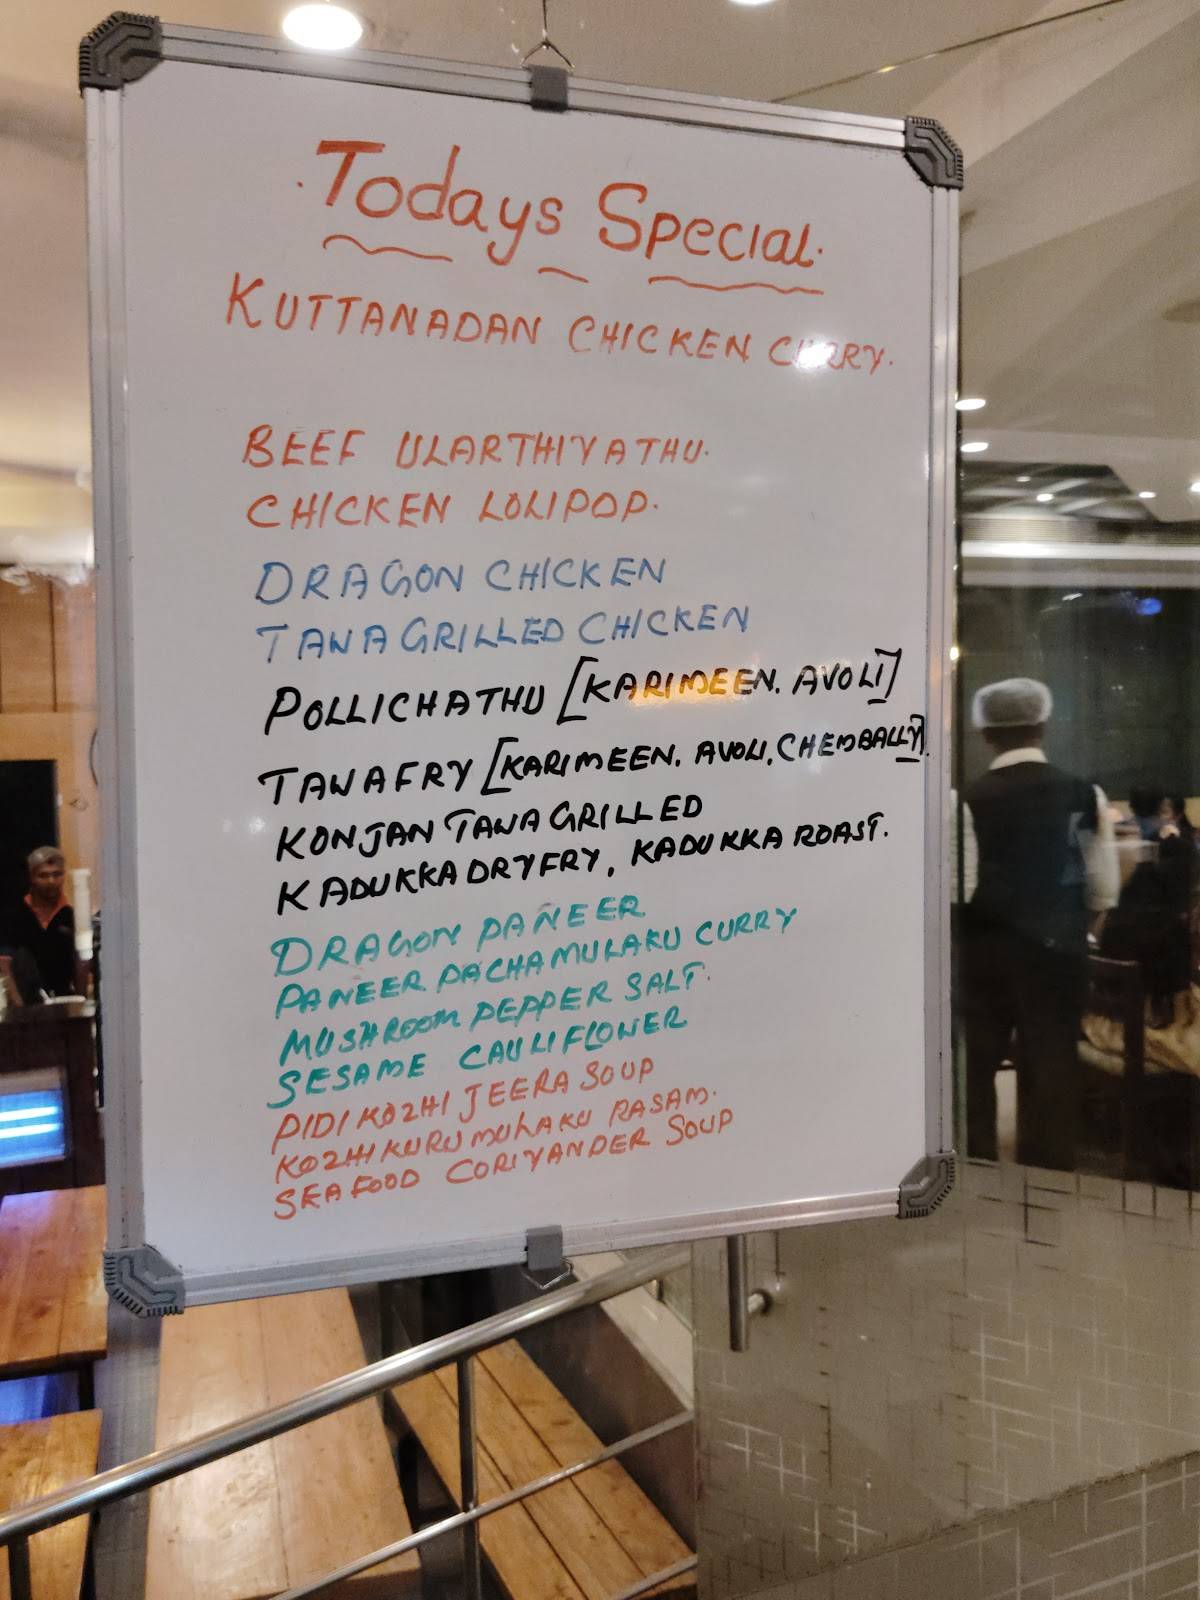 Todays Special.
KUTTANADAN CHICKEN CURRY.
BEEF ULARTHIYATHU.
CHICKEN LOLIPOP.
DRAGON CHICKEN
TAWA GRILLED CHICKEN
POLLICHATHU [KARIMEEN. AVOLI]
TAWA FRY [KARIMEEN. AVOLI, CHEMBALLY].
KONJAN TAWA GRILLED
KADUKKA DRYFRY, KADUKKA ROAST.
DRAGON PANEER
PANEER PACHAMULAKU CURRY
MUSHROOM PEPPER SALT.
SESAME CAULIFLOWER
PIDI KOZHI JEERA SOUP
KOZHI KURUMULAKU RASAM.
SEAFOOD CORIYANDER SOUP